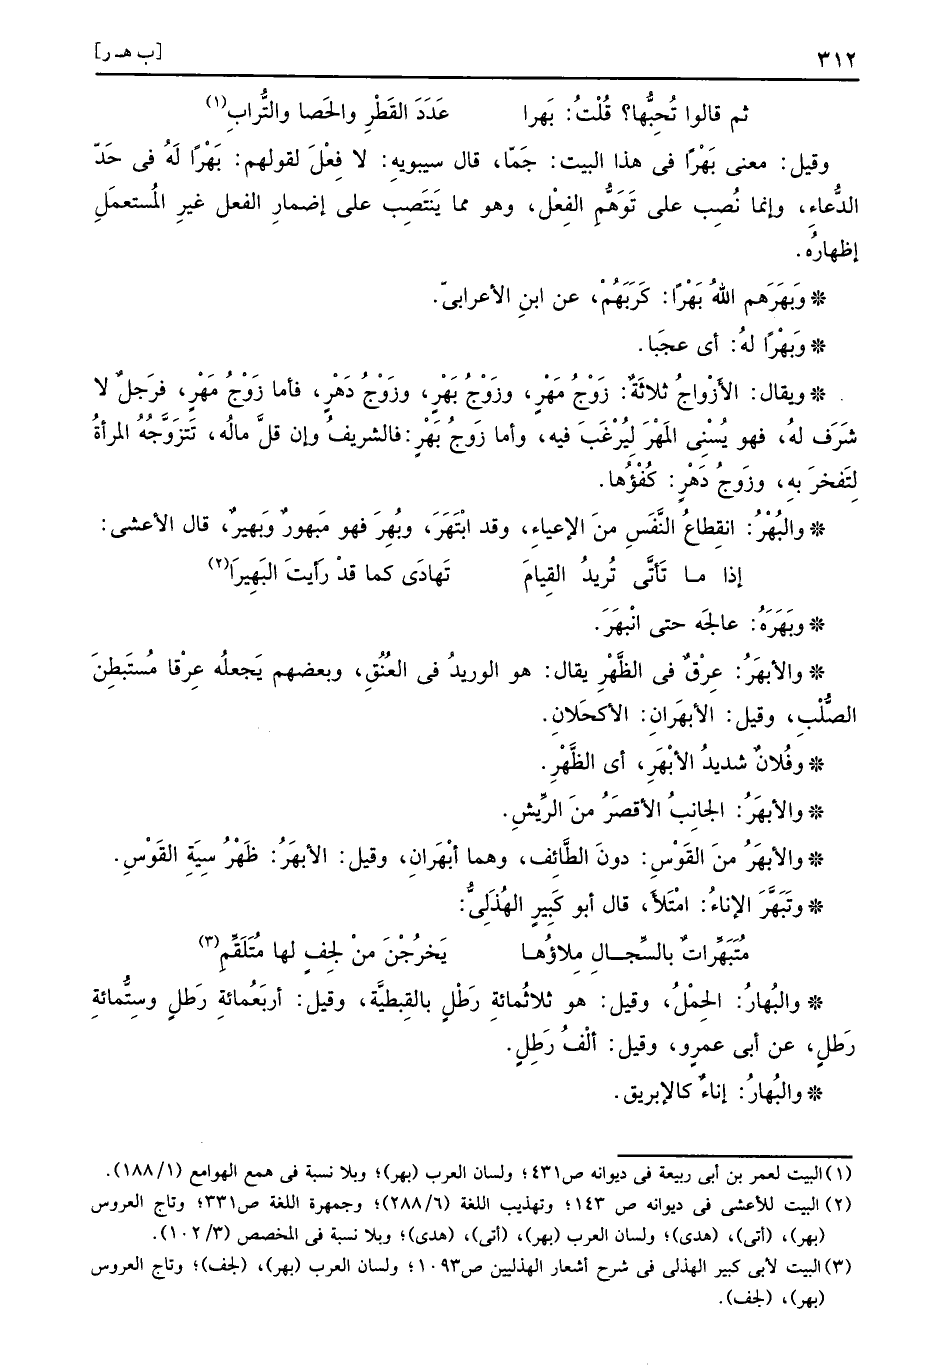 ٣١٢ [ب هـ ر]
ثم قالوا تُحبُّها؟ قُلْتُ: بَهرا عَدَدَ القَطْرِ والحَصا والتُّرابِ(١)
وقيل: معنى بَهْرًا فى هذا البيت: جَمّا، قال سيبويه: لا فعْلَ لقولهم: بَهْرًا لَهُ فى حَدّ
الدُّعاءِ، وإنما نُصِب على تَوَهُّمِ الفِعْل، وهو مما يَنتَصِب على إضمار الفعل غيرِ المُستعملِ
إظهارُه.
* وبَهَرَهم اللهُ بَهْرًا: كَرَبَهُمْ، عن ابنِ الأعرابىّ.
* وبَهْرًا لهُ: أى عجَبا.
* ويقال: الأَزْواجُ ثلاثَةٌ: زَوْجُ مَهْرٍ، وزَوْجُ بَهْرٍ، وزَوْجُ دَهْرٍ، فأما زَوْجُ مَهْرٍ، فرَجلٌ لا
شَرَف لهُ، فهو يُسْنِى المَهْرَ لِيُرْغَبَ فيه، وأما زَوجُ بَهْرٍ: فالشريفُ وإن قلَّ مالُه، تَتزوَّجُهُ المرأةُ
لِتَفخرَ به، وزَوجُ دَهْرٍ: كُفْؤُها.
* والبُهْرُ: انقِطاعُ النَّفَسِ منَ الإعياءِ، وقد ابْتَهَرَ، وبُهِرَ فهو مَبهورٌ وبَهيرٌ، قال الأعشى:
إذا ما تَأَتَّى تُريدُ القِيامَ تَهادَى كما قدْ رَأيتَ البَهِيرَا(٢)
* وبَهَرَهُ: عالجَه حتى انْبهَرَ.
* والأبهَرُ: عِرْقٌ فى الظَّهْرِ يقال: هو الوريدُ فى العُنُقِ، وبعضهم يَجعلُه عِرْقا مُستَبطِنَ
الصُّلْبِ، وقيل: الأبهَرانِ: الأكحَلانِ.
* وفُلانٌ شديدُ الأبْهَرِ، أى الظَّهْرِ.
* والأبهَرُ: الجانبُ الأقصَرُ منَ الرِّيشِ.
* والأبهَرُ منَ القَوْسِ: دونَ الطَّائف، وهما أبْهَرانِ، وقيل: الأبهَرُ: ظَهْرُ سِيَةِ القَوْسِ.
* وتَبَهَّرَ الإناءُ: امْتَلأَ، قال أبو كَبيرٍ الهُذَلِىُّ:
مُتَبَهِّراتٌ بالسِّجـالِ مِلاؤُهـا يَخرُجْنَ منْ لجِفٍ لها مُتَلَقِّمِ(٣)
* والبُهارُ: الحِمْلُ، وقيل: هو ثلاثُمائةِ رَطْلٍ بالقبطيَّة، وقيل: أربَعُمائةِ رَطلٍ وستُّمائةِ
رَطلٍ، عن أبى عمرٍو، وقيل: أَلْفُ رَطِلٍ.
* والبُهارُ: إناءٌ كالإبريق.
(١) البيت لعمر بن أبى ربيعة فى ديوانه ص٤٣١؛ ولسان العرب (بهر)؛ وبلا نسبة فى همع الهوامع (١/ ١٨٨).
(٢) البيت للأعشى فى ديوانه ص ١٤٣؛ وتهذيب اللغة (٦/ ٢٨٨)؛ وجمهرة اللغة ص٣٣١؛ وتاج العروس
(بهر)، (أتى)، (هدى)؛ ولسان العرب (بهر)، (أتى)، (هدى)؛ وبلا نسبة فى المخصص (٣/ ١٠٢).
(٣) البيت لأبى كبير الهذلى فى شرح أشعار الهذليين ص١٠٩٣؛ ولسان العرب (بهر)، (لجف)؛ وتاج العروس
(بهر)، (لجف).